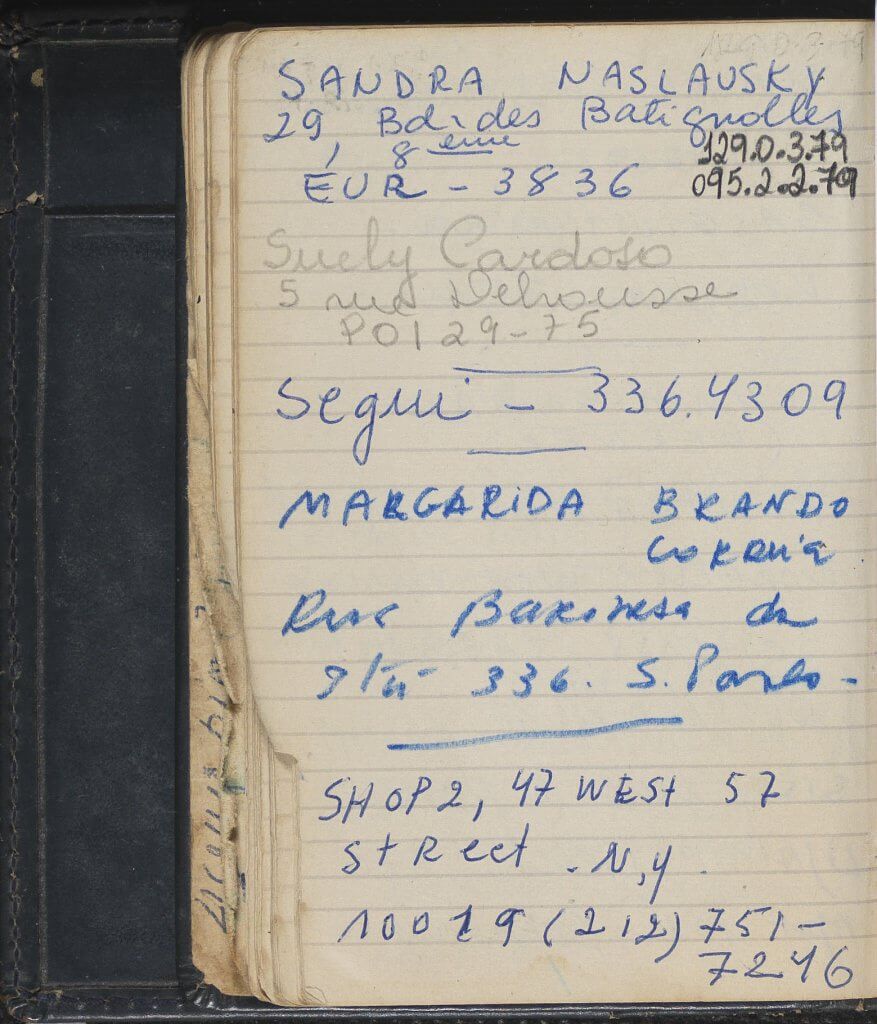 129.0.3.79
SANDRA NASLAVSKY
29, Bd. des Batignolles
8 eme
129.0.3.79
EUR - 3836
095.2.2.79
Suely Cardoso
5 rue Dehousse
POI 29-75
Segui - 336.4309
MARGARIDA BRANDO
CORREIA
Rua Baronesa de
Itú 336. S. Paulo -
SHOP 2, 47 WEST 57
StReet . N,y.
10019 (212) 751-
7246